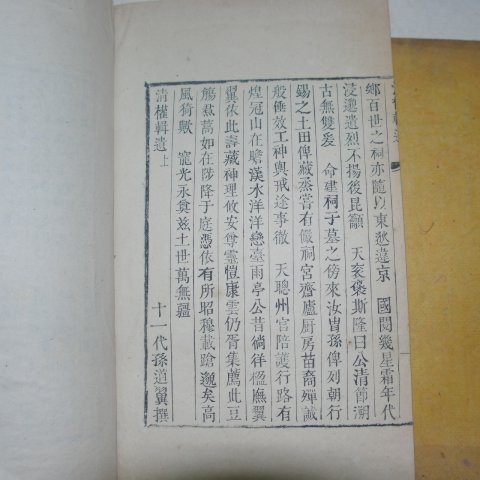 鄉百世之祠亦隨以東愁違京　國閱幾星霜年代
浸邈遺烈不揚後昆籲　天衮褒斯隆曰公淸節溯
古無雙爰　命建祠于墓之傍來汝胄孫俾列朝行
錫之土田俾藏烝嘗有儼祠宮齋廬厨房苗裔殫誠
般倕效工神輿戒途事徹　天聰州官陪護行路有
煌冠山在瞻漢水洋洋戀臺雨亭公昔徜徉楹廡翼
翼依此壽藏神理攸安尊靈愷康雲仍胥集薦此豆
觴焄蒿如在陟降于庭憑依有所昭穆載蹌邈矣高
風猗歟　寵光永奠玆土世萬無疆
十一代孫道翼撰
淸權輯遺上